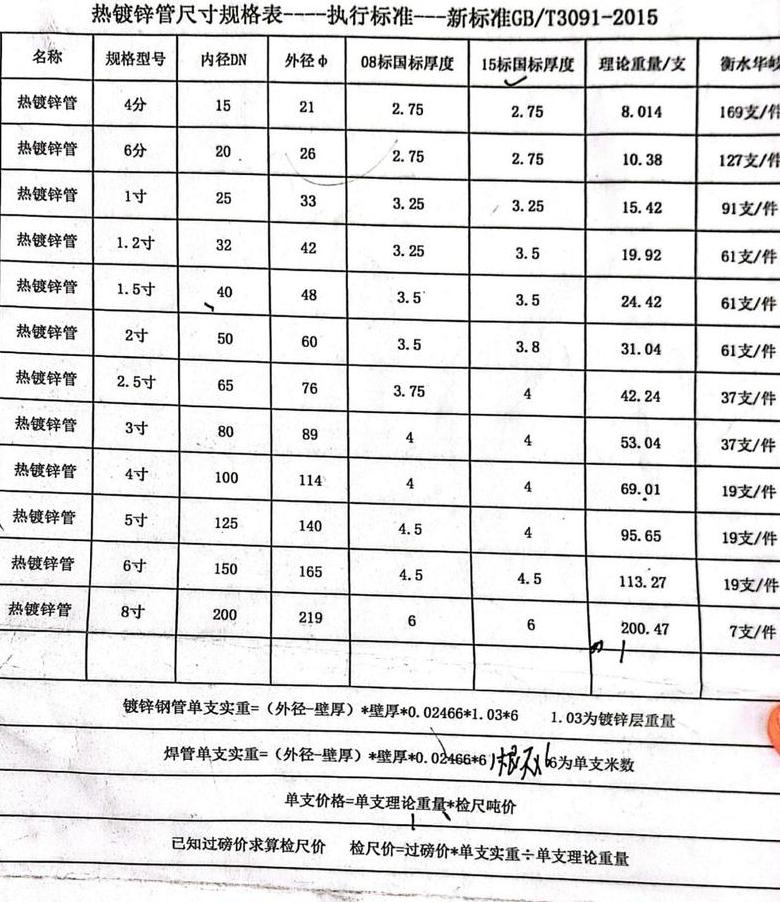 热镀锌管尺寸规格表----执行标准---新标准GB/T3091-2015
名称 规格型号 内径DN 外径φ 08标国标厚度 15标国标厚度 理论重量/支 衡水华
热镀锌管 4分 15 21 2.75 2.75 8.014 169支/件
热镀锌管 6分 20 26 2.75 2.75 10.38 127支/件
热镀锌管 1寸 25 33 3.25 3.25 15.42 91支/件
热镀锌管 1.2寸 32 42 3.25 3.5 19.92 61支/件
热镀锌管 1.5寸 40 48 3.5 3.5 24.42 61支/件
热镀锌管 2寸 50 60 3.5 3.8 31.04 61支/件
热镀锌管 2.5寸 65 76 3.75 4 42.24 37支/件
热镀锌管 3寸 80 89 4 4 53.04 37支/件
热镀锌管 4寸 100 114 4 4 69.01 19支/件
热镀锌管 5寸 125 140 4.5 4 95.65 19支/件
热镀锌管 6寸 150 165 4.5 4.5 113.27 19支/件
热镀锌管 8寸 200 219 6 6 200.47 7支/件
镀锌钢管单支实重=(外径-壁厚)*壁厚*0.02466*1.03*6 1.03为镀锌层重量
焊管单支实重=(外径-壁厚)*壁厚*0.02466*6 6为单支米数
单支价格=单支理论重量*检尺吨价
已知过磅价求算检尺价 检尺价=过磅价*单支实重÷单支理论重量